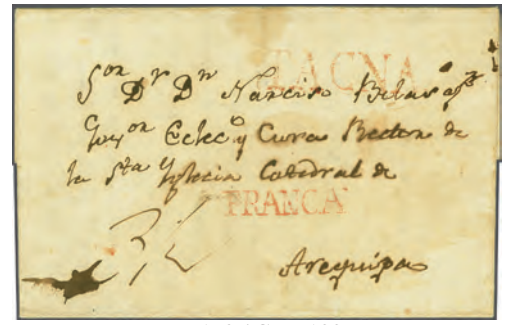 TACNA
Sor Dr Dn Narciso
Ecleco y Cura Rector de
la Sta Yglecia Catedral de
FRANCA
Arequipa